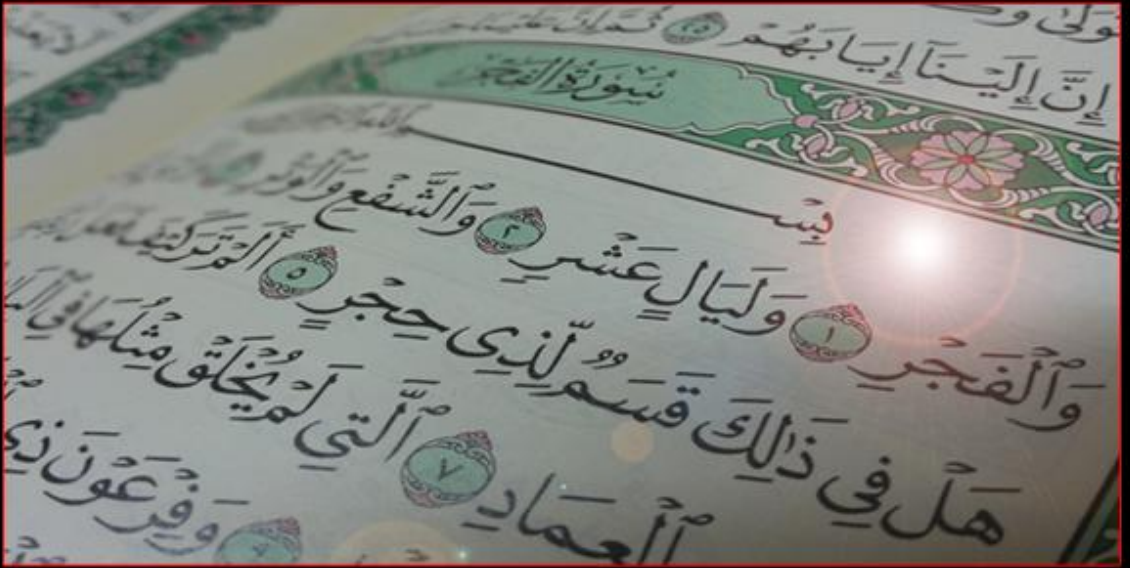 تولى وك
إن إلينا إيابهم ٢٥ ثم إن علينا
سورة الفجر
بسم
وَٱلْفَجْرِ ١ وَلَيَالٍ عَشْرٍ ٢ وَٱلشَّفْعِ وَٱلْوَتْرِ
هَلْ فِي ذَٰلِكَ قَسَمٌ لِّذِي حِجْرٍ ٥ أَلَمْ تَرَ كَيْفَ فَعَلَ
ٱلْعِمَادِ ٧ ٱلَّتِي لَمْ يُخْلَقْ مِثْلُهَا فِي ٱلْبِلَا
وَفِرْعَوْنَ ذِي